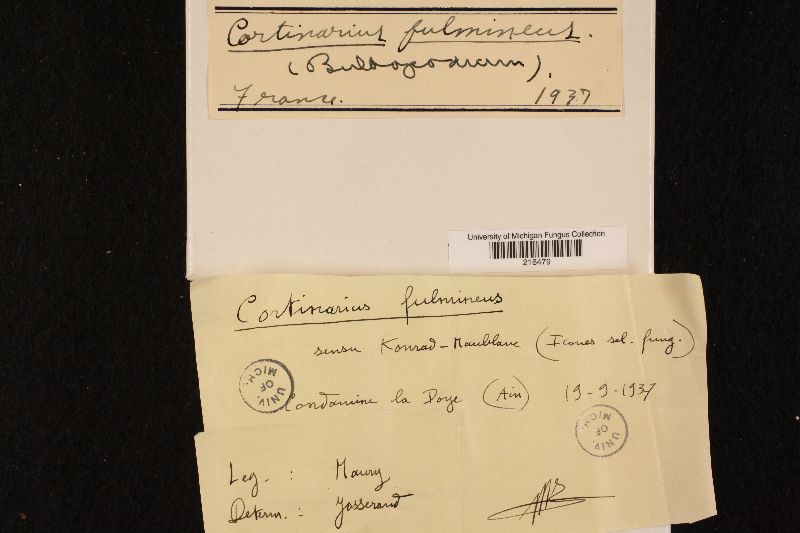 Cortinarius fulmineus.
(Bulbopodium).
France. 1937
University of Michigan Fungus Collection
216479
Cortinarius fulmineus
sensu Konrad-Maublanc (Icones sel. fung.)
Condamine la Doye (Ain) 19-9-1937
UNIV. OF MICH.
UNIV. OF MICH.
Leg. : Maury
Determ. : Josserand